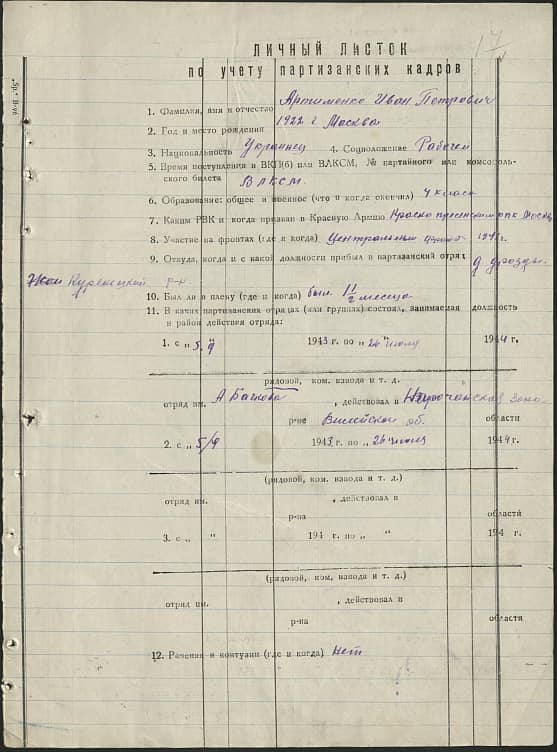 17
ЛИЧНЫЙ ЛИСТОК
по учету партизанских кадров
1. Фамилия, имя и отчество Артименко Иван Петрович
2. Год и место рождения 1922 г Москва
3. Национальность Украинец 4. Соцположение Рабочей
5. Время поступления в ВКП(б) или ВЛКСМ, № партийного или комсомоль-
ского билета ВЛКСМ.
6. Образование: общее и военное (что и когда окончил) 4 класса
7. Каким РВК и когда призван в Красную Армию Красно пресненским рвк Москв
8. Участие на фронтах (где и когда) Центральным фронт 1941г.
9. Откуда, когда и с какой должности прибыл в партизанский отряд д дрозды.
Куренецкий р-н.
10. Был ли в плену (где и когда) был 1 1/2 месяца
11. В каких партизанских отрядах (или группах) состоял, занимаемая должность
и район действия отряда:
1. с „ 5. 9 " 1943 г. по „ 26 " июля 1944 г.
(рядовой, ком. взвода и т. д.
отряд им. А Бачкова , действовал в Нарочанская зоно
р-не Вилейской об. области
2. с „ 5/9 1943. г. по „ 26 июля 1944 г.
(рядовой, ком. взвода и т. д.)
отряд им. , действовал в
р-на области
3. с „ " 194 г. по „ " 194 г.
(рядовой, ком. взвода и т. д.)
отряд им. , действовал в
р-на области
12. Ранения и контузии (где и когда) Нет